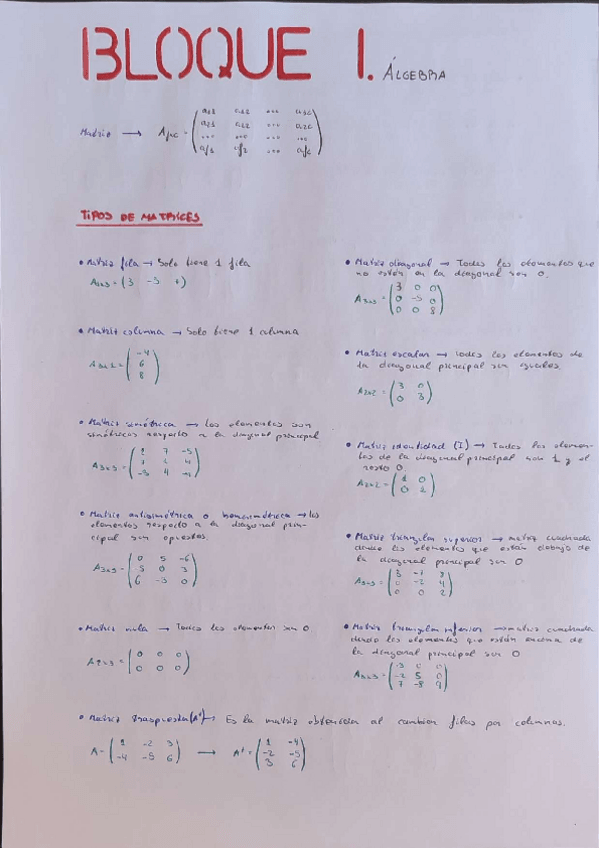 BLOQUE I. ÁLGEBRA
Matriz → Afxc = ( a11 a12 ... a1c
a21 a22 ... a2c
... ... ... ...
af1 af2 ... afc )
TIPOS DE MATRICES
• Matriz fila → Solo tiene 1 fila
= (3 -5
• Matriz columna → Solo tiene 1 columna
A3x1 = ( -4
6
8 )
• Matriz simétrica → Los elementos son
simétricos respecto a la diagonal principal
A3x3 =
• Matriz antisimétrica o hemisimétrica → los
elementos respecto a la diagonal prin-
cipal son opuestos.
A3x3 = ( 0 5 -6
5 0 3
6 -3 0 )
• Matriz nula → Todos los elementos son 0.
A2x3 = ( 0 0 0
0 0 0 )
• Matriz diagonal → Todos los elementos que
no están en la diagonal son 0.
A3x3 = ( 3 0 0
0 -5 0
0 0 8 )
• Matriz escalar → Todos los elementos de
la diagonal principal son iguales.
A2x2 = ( 3 0
0 3 )
• Matriz identidad (I) → Todos los elemen-
tos de la diagonal principal son 1 y el
resto 0
A2x2 = ( 1 0
0 1 )
• Matriz triangular superior → matriz cuadrada
donde los elementos que están debajo de
la diagonal principal son 0
A3x3 =
0 -2 4
0 0 2 )
• Matriz triangular inferior → matriz cuadrada
donde los elementos que están encima de
la diagonal principal son 0
A3x3 = ( 3 0 0
-2 5 0
7 -8 9 )
• Matriz traspuesta (Aᵗ) → Es la matriz obtenida al cambiar filas por columnas.
A = ( 1 -2 3
-4 -5 6 ) → Aᵗ = ( 1 -4
-2 -5
3 6 )